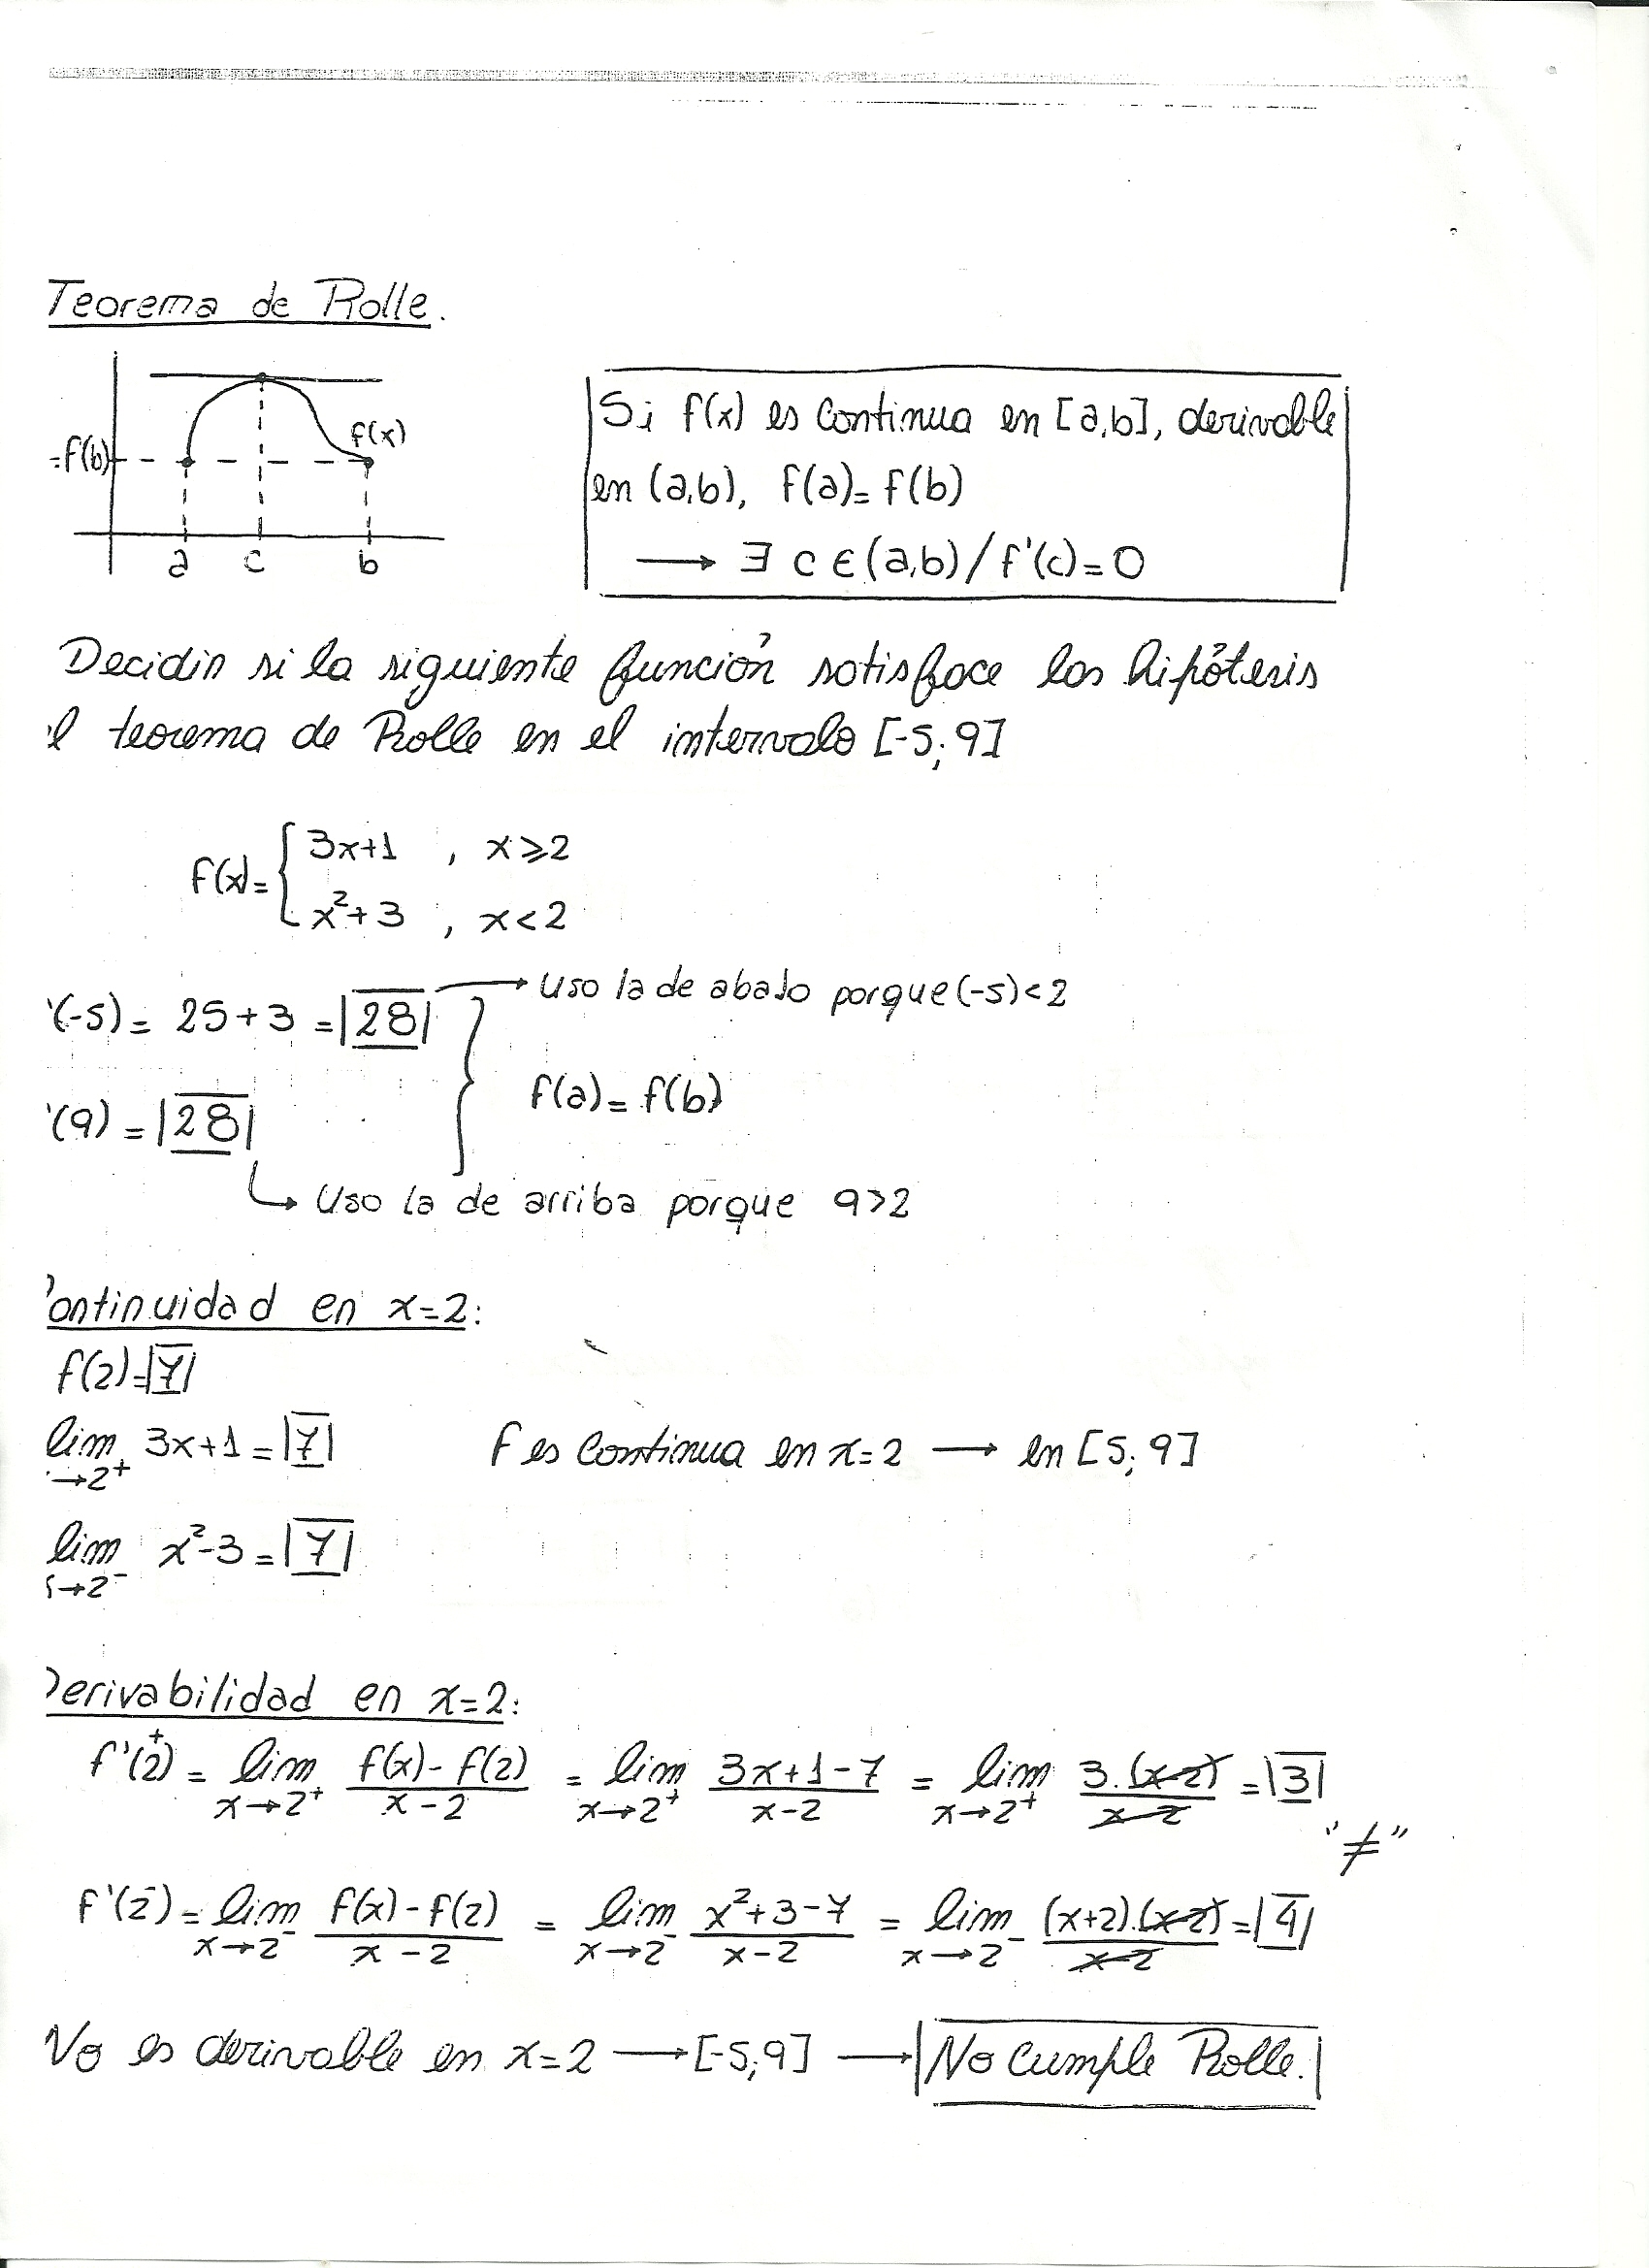 Teorema de Rolle.
=f(b)
f(x)
a c b
Si f(x) es continua en [a,b], derivable
en (a,b), f(a)=f(b)
→ ∃ c ∈ (a,b) / f'(c)=0
Decidir si la siguiente función satisface las hipótesis
l teorema de Rolle en el intervalo [-5;9]
f(x)= { 3x+1 , x⩾2
x²+3 , x<2
'(-5)= 25+3 = |28| → Uso la de abajo porque (-5)<2
f(a)=f(b)
'(9) = |28|
↳ Uso la de arriba porque 9>2
ontinuidad en x=2:
f(2)=|7|
lim →2⁺ 3x+1 = |7|
F es continua en x=2 → en [5;9]
lim →2⁻ x²-3 = |7|
erivabilidad en x=2:
f'(2⁺) = lim x→2⁺ f(x)-f(2) / x-2 = lim x→2⁺ 3x+1-7 / x-2 = lim x→2⁺ 3.(x-2) / x-2 = |3|
"≠"
f'(2⁻) = lim x→2⁻ f(x)-f(2) / x-2 = lim x→2⁻ x²+3-7 / x-2 = lim x→2⁻ (x+2).(x-2) / x-2 = |4|
No es derivable en x=2 → [-5;9] → |No cumple Rolle.|